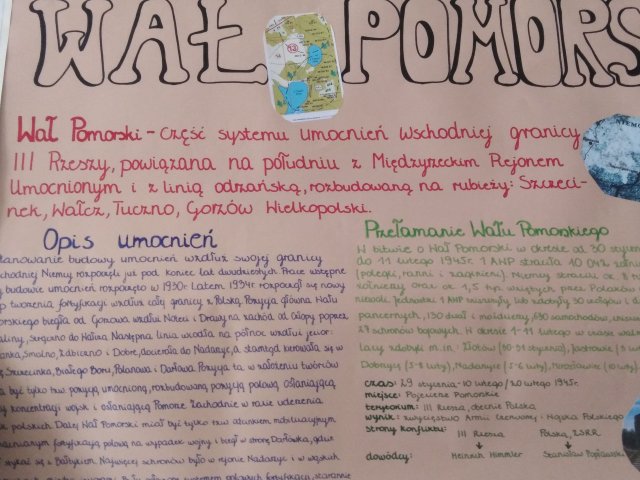 WAŁ POMORS
Wał Pomorski - Część systemu umocnień Wschodniej granicy
III Rzeszy, powiązana na południu z Międzyrzeckim Rejonem
Umocnionym i z linią odrzańską, rozbudowaną na rubieży: Szczeci-
nek, Wałcz, Tuczno, Gorzów Wielkopolski.
Opis umocnień
lanowanie budowy umocnień wzdłuż swojej granicy
chodniej Niemcy rozpoczęli już pod koniec lat dwudziestych. Prace wstępne
budowie umocnień rozpoczęto w 1930r. Latem 1934r rozpoczął się nowy
p tworzenia fortyfikacji wzdłuż całej granicy z Polską. Pozycja główna Wału
orskiego biegła od Gorzowa wzdłuż Noteci i Drawy na zachód od
Następna linia wiodła na północ wzdłuż jezior:
Smolno, Zdbiczno i Dobre, docierała do Nadarzyc, a stamtąd kierowała się w
Szczecinka, Białego Boru, Polanowa i Darłowa. Pozycja ta, w założeniu twórców
a być tylko tzw. pozycją umocnioną, rozbudowaną pozycją polową osłaniającą
y koncentracji wojsk i osłaniającą Pomorze Zachodnie w razie uderzenia
k polskich. Dalej Wał Pomorski miał być tylko tzw.
fortyfikacją polową na wypadek wojny i biegł w stronę Darłówka, gdzie
stykać się z Bałtykiem. Najwięcej schronów było w rejonie Nadarzyc i w wąskich
Przełamanie Wału Pomorskiego
W bitwie o Wał Pomorski w okresie od 30 stycz
do 11 lutego 1945r. 1 AWP straciła 10
(polegli, ranni i zaginieni). Niemcy stracili ok. 8
żołnierzy oraz ok. 1,5 tys. wziętych przez Polaków
niewoli. Jednostki 1 AWP zniszczyły lub zdobyły 30 czołgów i dz
pancernych, 130 dział i moździerzy, 690 samochodów,
29 schronów bojowych. W okresie 1-11 lutego w czasie walk
lacy zdobyli m.in: Złotów (30-31 stycznia), Jastrowie (3
Dobrzycę (5-8 luty), Nadarzyce (5-6 luty), Mirosławiec (10 luty).
czas: 29 stycznia - 10 lutego / 20 lutego 1945r.
miejsce: Pojezierze Pomorskie
terytorium: III Rzesza, obecnie Polska
wynik: zwycięstwo Armii Czerwonej i Wojska Polskiego
strony konfliktu: III Rzesza Polska, ZSRR
dowódcy: Heinrich Himmler Stanisław Popławski